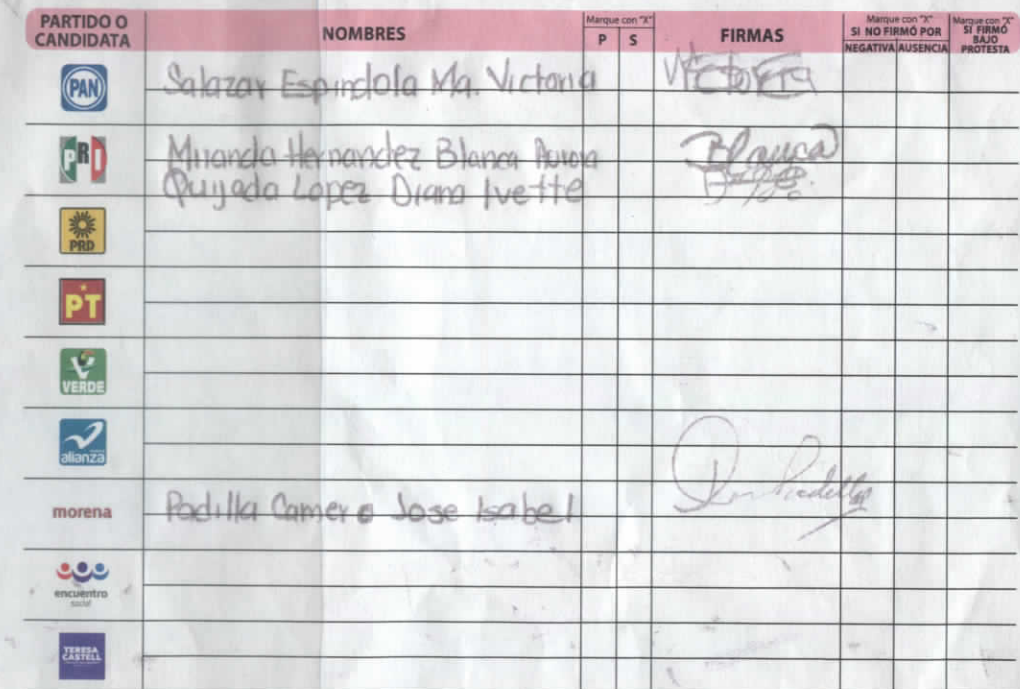 PARTIDO O CANDIDATA
NOMBRES
Marque con "X"
P S
FIRMAS
Marque con "X"
SI NO FIRMÓ POR
NEGATIVA AUSENCIA
Marque con "X"
SI FIRMÓ
BAJO
PROTESTA
PAN
Salazar Espindola Ma. Victoria
Victoria
PRI
Miranda Hernandez Blanca Aurora
Blanca
Quijada Lopez Diana Ivette
PRD
PT
VERDE
alianza
morena
Padilla Camero Jose Isabel
encuentro
social
TERESA
CASTELL